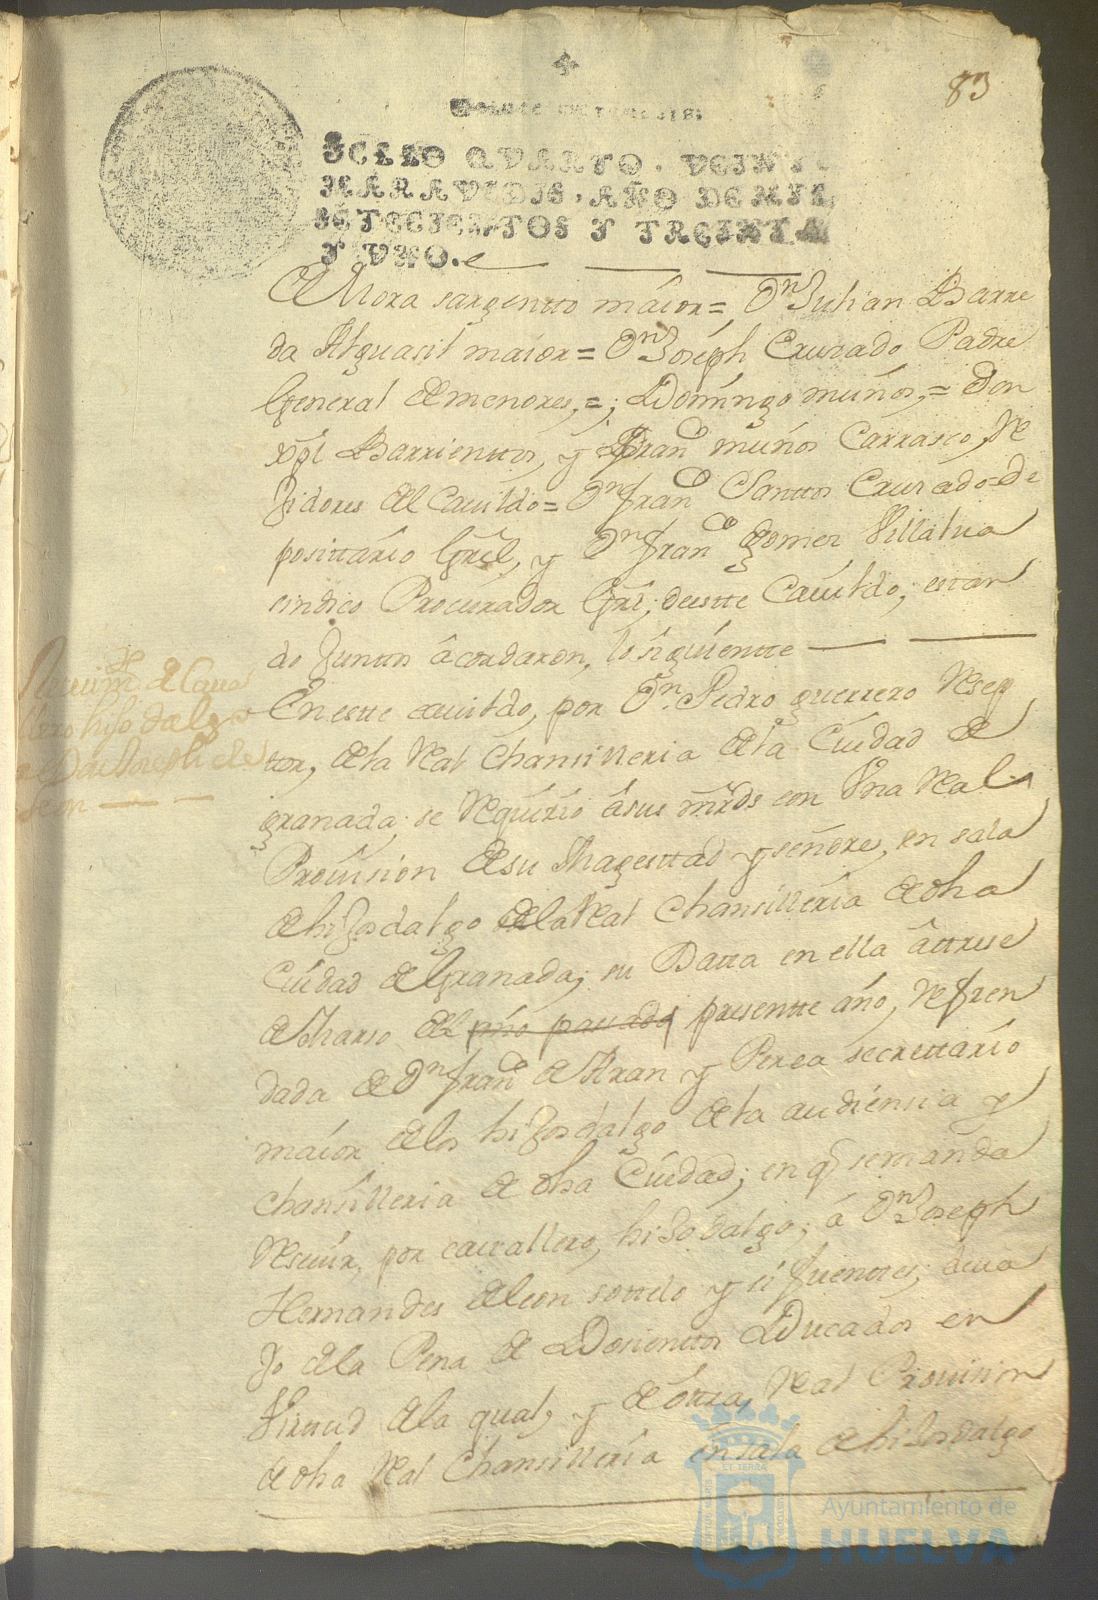 83
SELLO QVARTO. VEINTE
MARAVEDIS, AÑO DE MIL
SETECIENTOS Y TREINTA
Y VNO.
de Mora sargentto maior= Dn Julian Barre
da Alguasil maior= Dn Joseph Cruzado Padre
General de menores,=; Domingo muños,= Don
xpl Barrienttos, y Franco muños Carrasco, Re
jidores del Cavildo= Dn Franco Santtos Cruzado De
posittario Grl, y Dn Franco gomes Villalva
sindico Procurador Grl; deestte Cavildo; estan
do Junttos âcordaron, lo siguientte
En estte cavildo, por Dn Pedro guerrero Resep
tor, de la Real Chansilleria de la Ciudad de
granada; se Requirio âsus mrds con Vna Real
Provision de su Magesttad y señores, en sala
de hijosdalgo de la Real Chansilleria de dha
Ciudad de Granada; su Datta en ella âttrese
de Marso del pño pasado presentte año, Refren
dada de Dn Franco de Aran y Perea secrettario
maior de los hijosdalgo de la audiensia y
chansilleria de dha Ciudad; en q se manda
Resevir, por cavallero, hijodalgo; á Dn Joseph
Hernandes de leon sottelo y sifuenttes; deva
jo de la Pena de Dosienttos Ducados en
Virttud de la qual, y de ôttra, Real Provision
de dha Real Chansilleria en sala de hijosdalgo
Resevimto de Cava
llero hijo dalgo
a Dn Joseph de
Leon
Ayuntamiento de
HUELVA